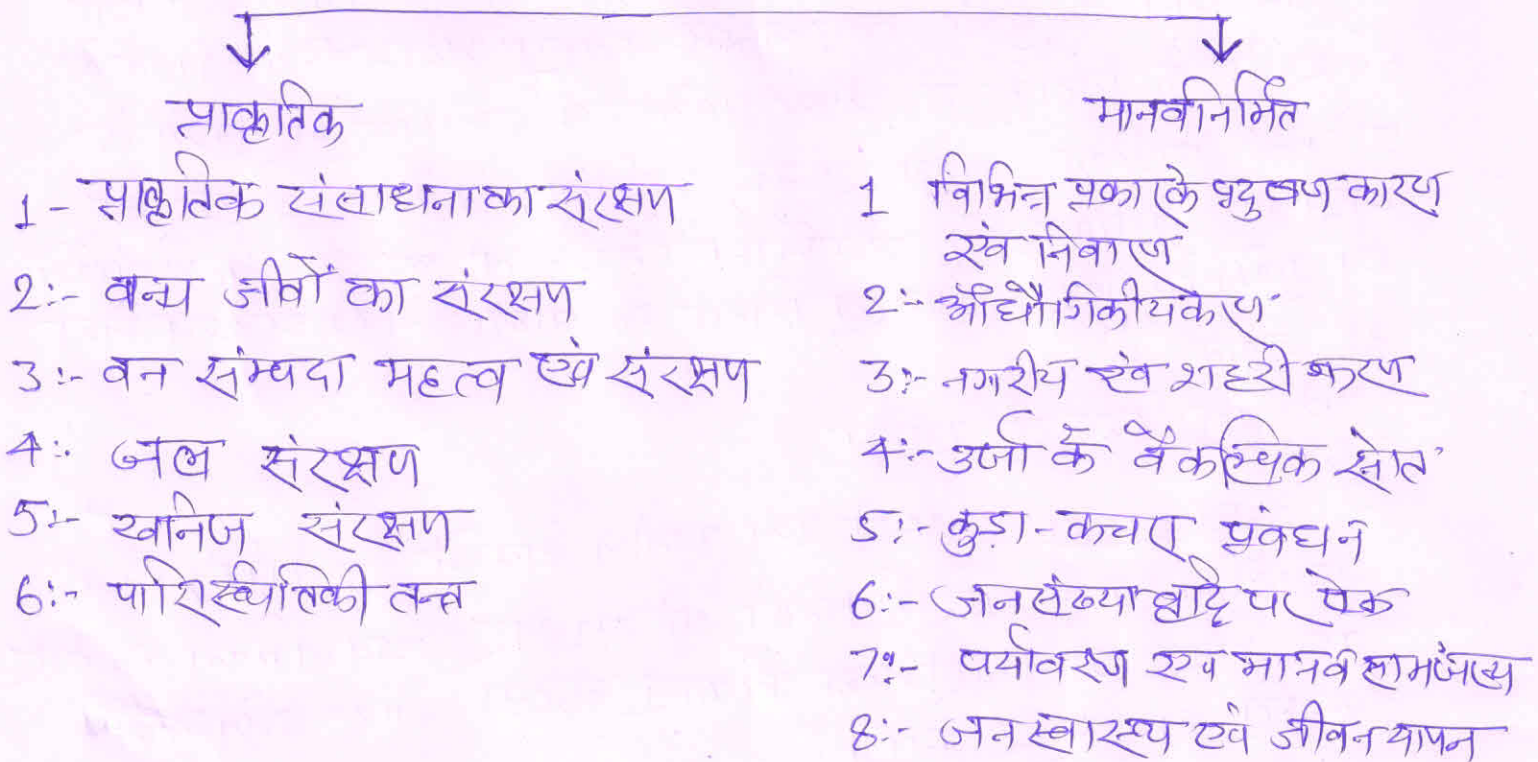 प्राकृतिक
1- प्राकृतिक संसाधनो का संरक्षण
2:- वन्य जीवों का संरक्षण
3:- वन सम्पदा महत्व एवं संरक्षण
4:- जल संरक्षण
5:- खनिज संरक्षण
6:- पारिस्थितिकी तन्त्र
मानवनिर्मित
1 विभिन्न प्रकार के प्रदुषण कारण
एवं निवारण
2:- औधौगिकीयकरण
3:- नगरीय एवं शहरी करण
4:- उर्जा के वैकल्पिक स्रोत
5:- कुड़ा-कचरा प्रबंधन
6:- जनसंख्या वृद्धि पर रोक
7:- पर्यावरण एवं मानव सामंजस्य
8:- जन स्वास्थ्य एवं जीवन यापन